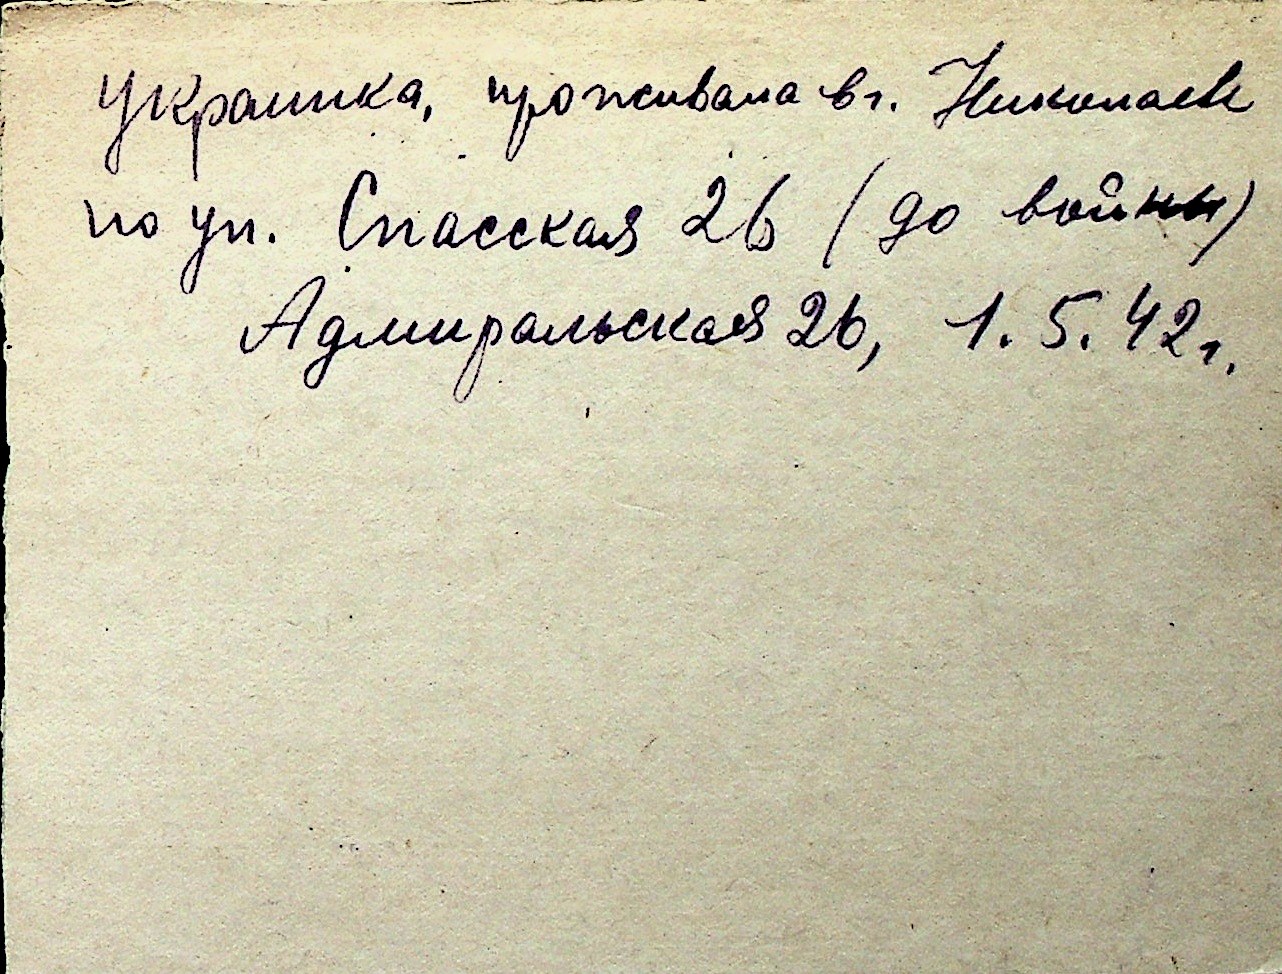 украинка, проживала в г. Николаев
по ул. Спасская 26 (до войны)
Адмиральская 26, 1.5.42 г.